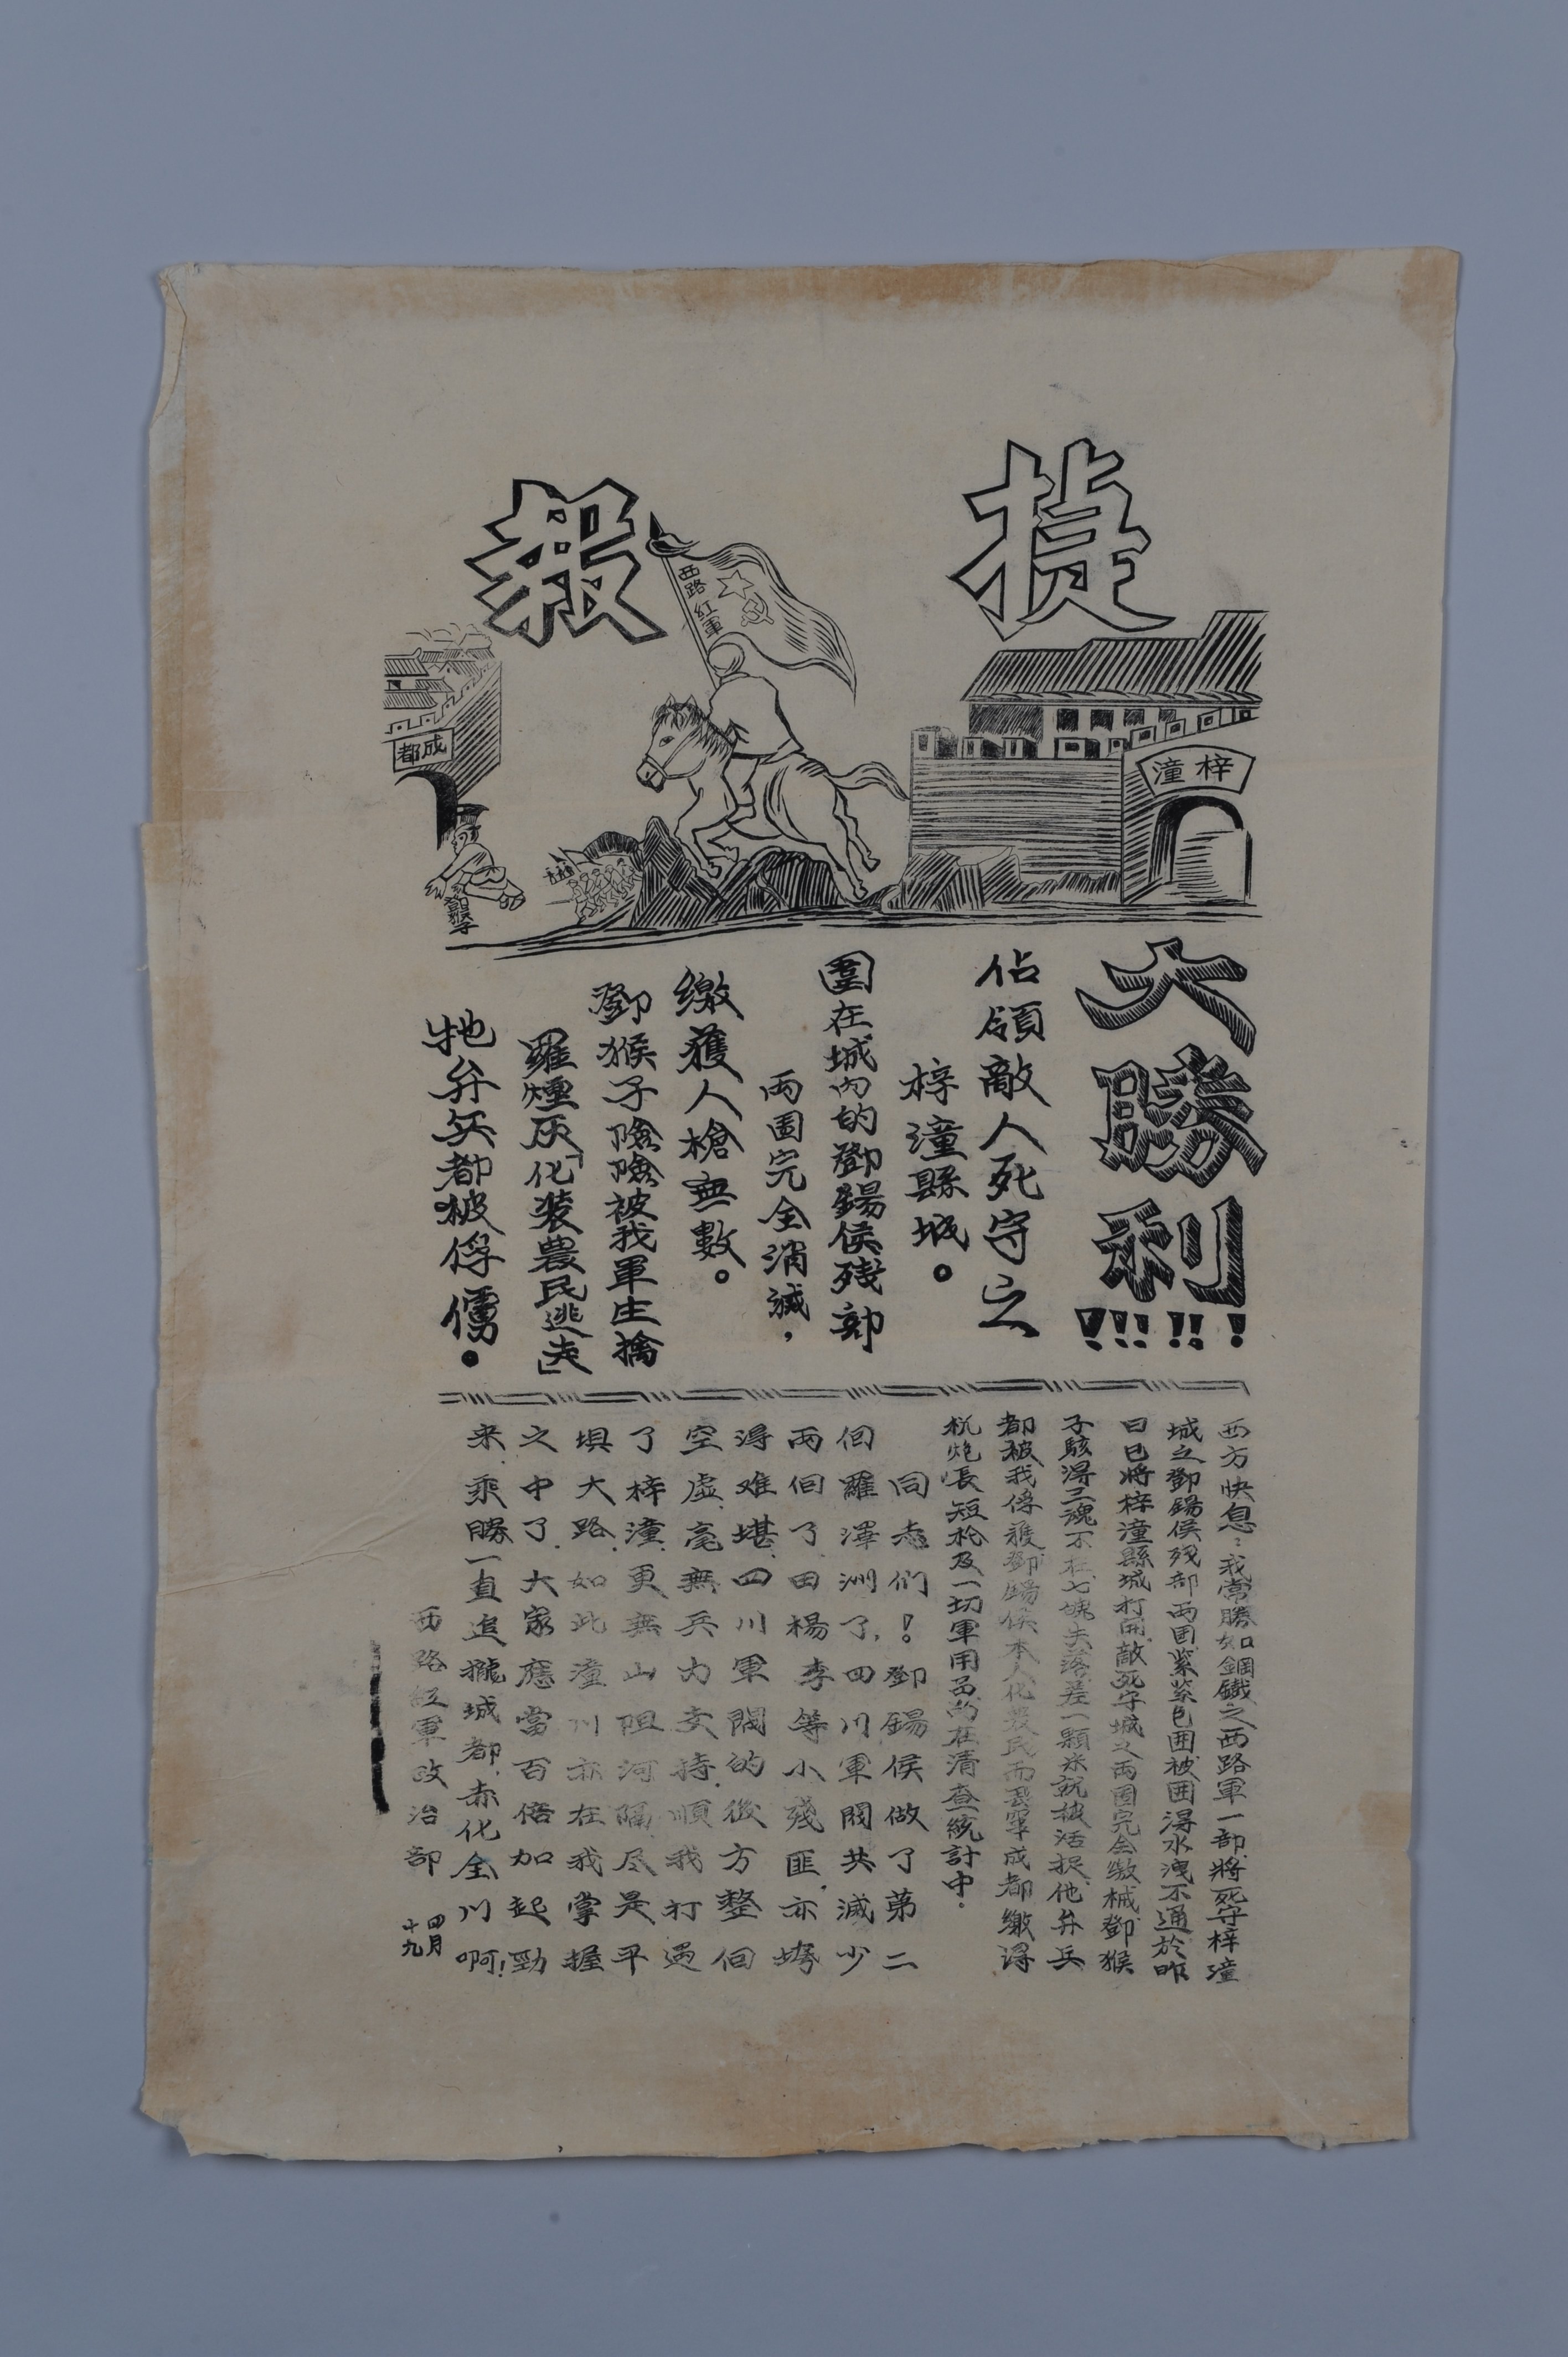 捷報
西路紅軍
梓潼
成都
鄧猴子
大勝利!!!!!!!
佔領敵人死守之
梓潼縣城。
圍在城内的鄧錫侯残部
两囯完全消滅，
繳獲人槍無數。
鄧猴子險險被我軍生擒
羅煙灰「化裝農民逃走」
他弁兵都被俘擄。
西方快息：我常勝如鋼鐵之西路軍一部.將死守梓潼
城之鄧錫侯残部两囯緊緊包囲被囲得水洩不通於昨
日已將梓潼縣城打開.敵死守城之两囯完全缴械鄧猴
子駭得三魂不在七魄失落差一顆米就被活捉.他弁兵
都被我俘獲鄧錫侯本人化農民而丟窜成都缴得
机炮長短枪及一切軍用品尚在清查統計中.
同志们！鄧錫侯做了第二
個羅澤洲了,四川軍閥共滅少
两個了.田楊李等小殘匪.亦垮
得难堪.四川軍閥的後方整個
空虛.毫無兵力支持.順我打過
了梓潼.更無山阻河隔尽是平
垻大路.如此潼川亦在我掌握
之中了.大家應當百倍加起勁
来.乘勝一直追攏城都.赤化全川啊!
西路紅軍政治部
四月
十九